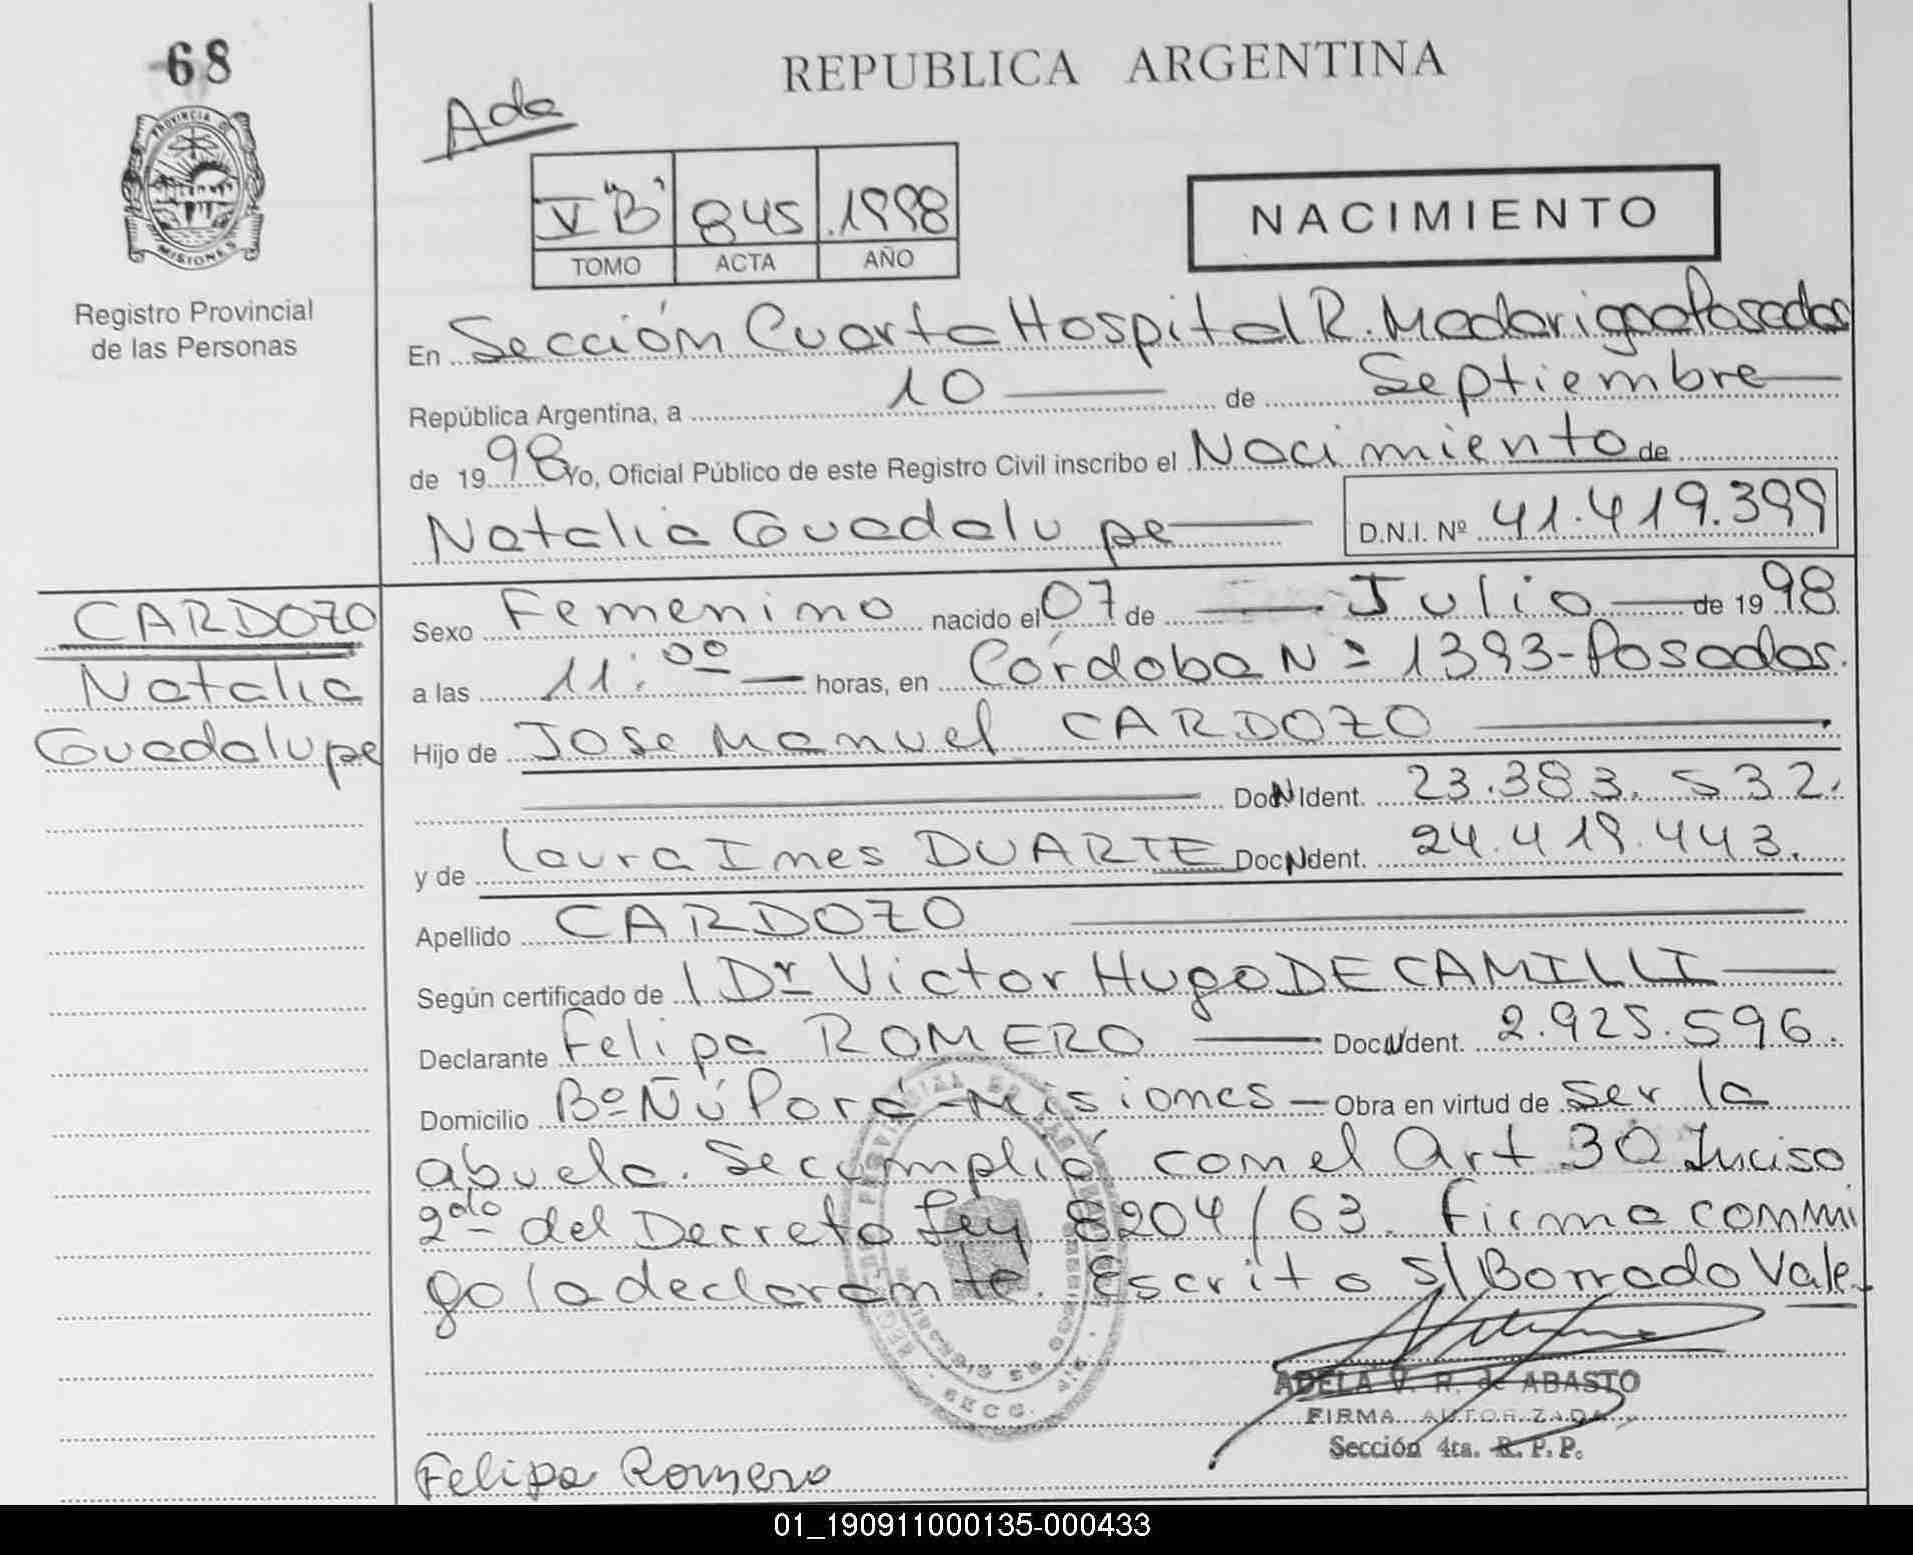 68
REPUBLICA ARGENTINA
Ada
PROVINCIA DE
MISIONES
V "B" 845 .1998
TOMO ACTA AÑO
NACIMIENTO
Registro Provincial
de las Personas
En Sección Cuarta Hospital R. Madariaga Posadas
República Argentina, a 10 de Septiembre
de 1998 Yo, Oficial Público de este Registro Civil inscribo el Nacimiento de
Natalia Guadalupe D.N.I. Nº 41.419.399
CARDOZO
Natalia
Guadalupe
Sexo Femenino nacido el 07 de Julio de 1998
a las 11:00 horas, en Córdoba Nº 1393-Posadas.
Hijo de Jose Manuel CARDOZO
Doc N Ident. 23.383.532.
y de Laura Ines DUARTE Doc N Ident. 24.419.443.
Apellido CARDOZO
Según certificado de l Dr Victor Hugo DECAMILLI
Declarante Felipa ROMERO Doc N Ident. 2.925.596.
Domicilio Bº Ñú Porá - Misiones - Obra en virtud de ser la
abuela. Se cumplió con el Art 30 Inciso
2do del Decreto Ley 8204/63. Firma conmi
go la declarante. Escrito s/ Borrado Vale.
ADELA V. R. de ABASTO
FIRMA AUTORIZADA
Sección 4ta. R. P. P.
Felipa Romero
01_190911000135-000433